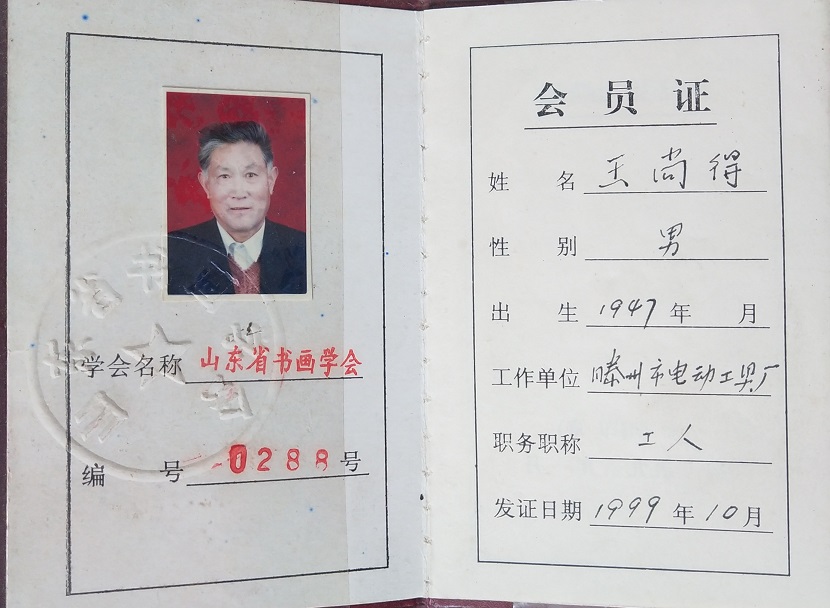 学会名称 山东省书画学会
编 号 0288号
会员证
姓 名 王尚得
性 别 男
出 生 1947年 月
工作单位 滕州市电动工具厂
职务职称 工人
发证日期 1999年10月